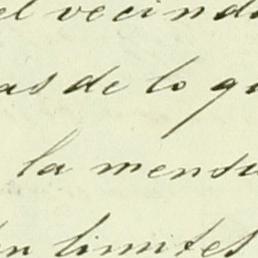 el vecinda
as de lo qu
la mensu
en limites